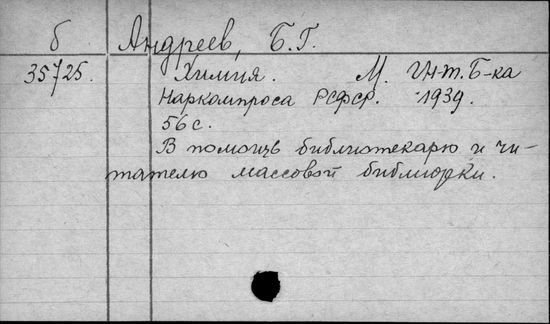 б Андреев, Б.Г.
35725. Химия. М. Ин-т. Б-ка
Наркомпроса РСФСР. 1939.
56 с.
В помощь библиотекарю и чи-
тателю массовой библиотеки.